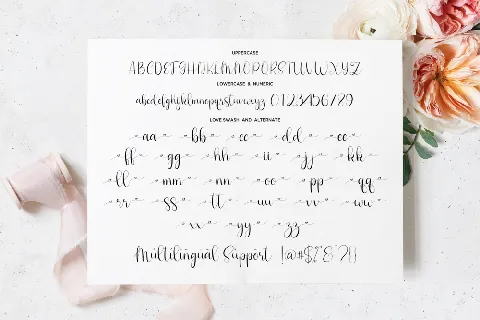 UPPERCASE
ABCDEFGHIJKLMNOPQRSTUVWXYZ
LOWERCASE & NUMERIC
abcdefghijklmnopqrstuvwxyz 0123456789
LOVE SWASH AND ALTERNATE
aa bb cc dd ee
ff gg hh ii jj kk
ll mm nn oo pp qq
rr ss tt uu vv ww
xx yy zz
Multilingual Support !@#$%&*()